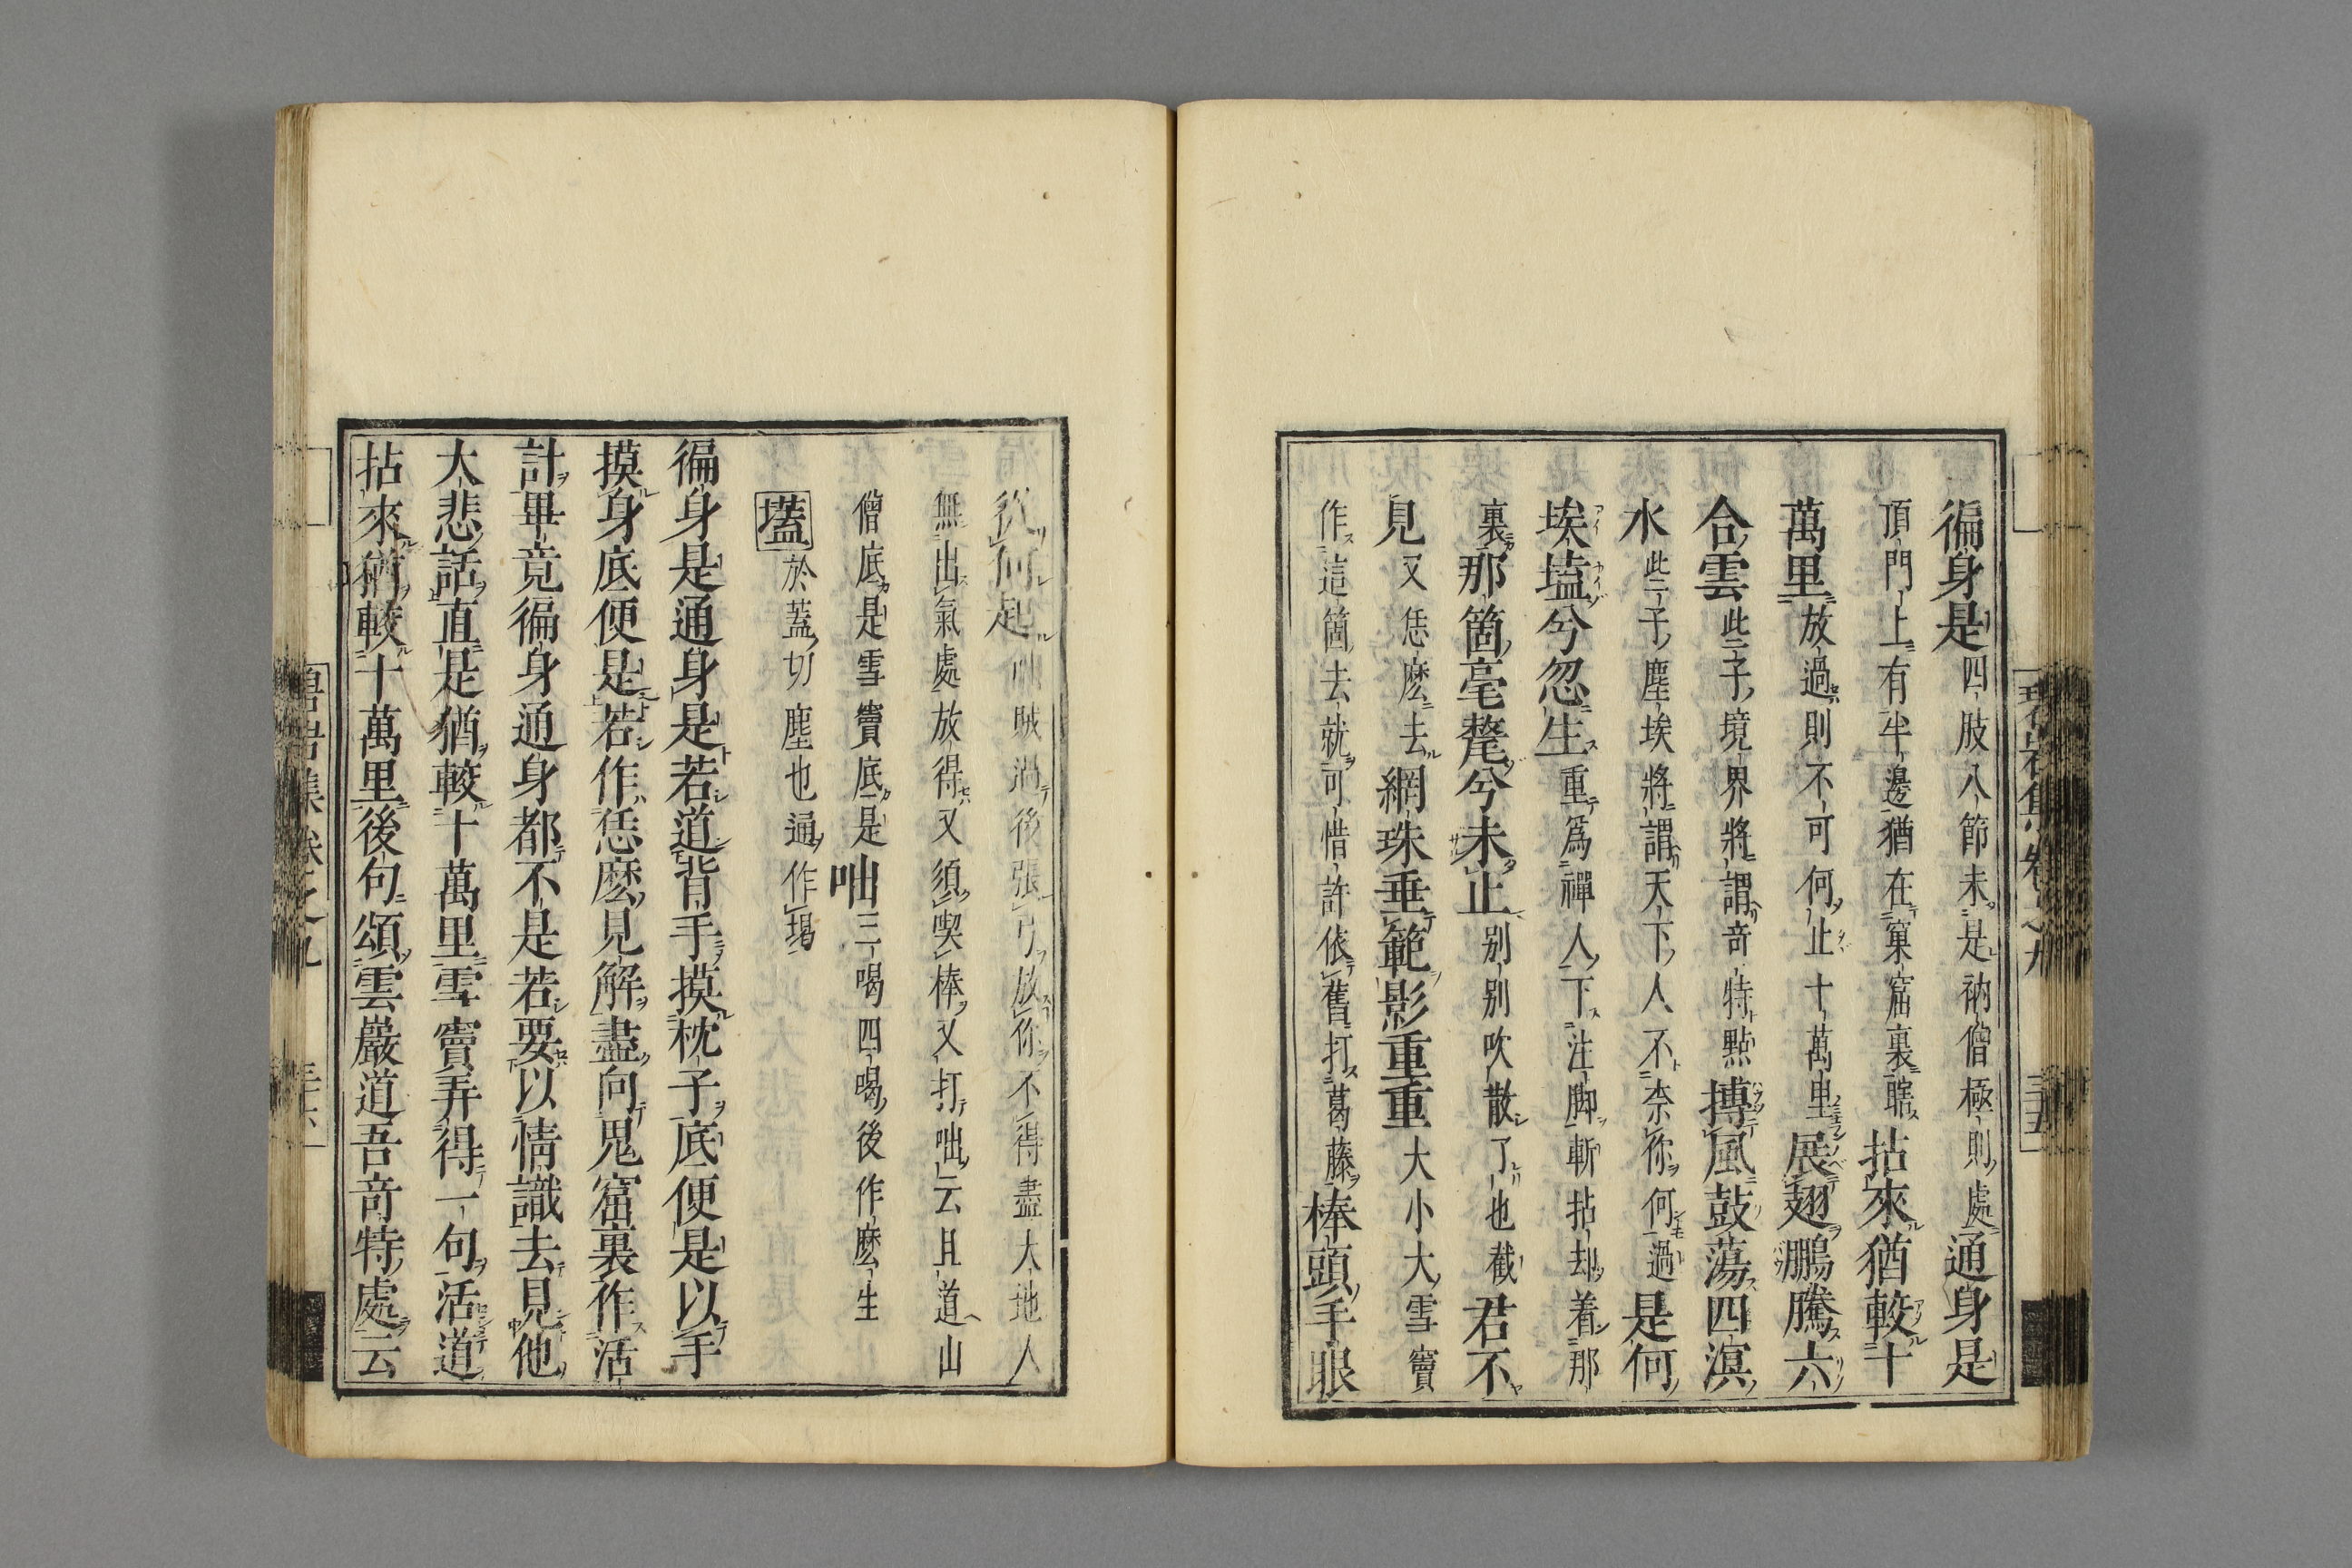 徧身是四肢八節未是衲僧極則處通身是
頂門上有半邊猶在窠窟裏瞎拈來猶較十
萬里放過則不可何止十萬里展翅鵬騰六
合雲此子境界將謂奇特點搏風鼓蕩四溟
水此子塵埃將謂天下人不奈你何過是何
埃壒兮忽生重爲禪人下注脚斬拈却着那
裏那箇毫氂兮未止別別吹散了也截君不
見又恁麼去網珠垂範影重重大小大雪竇
作這箇去就可惜許依舊打葛藤棒頭手眼
碧岩集卷之九 三十五
從何起咄賊過後張弓放你不得盡大地人
無出氣處放得又須喫棒又打咄云且道山
僧底是雪竇底是咄三喝四喝後作麼生
壒於蓋切塵也通作堨
徧身是通身是若道背手摸枕子底便是以手
摸身底便是若作恁麼見解盡向鬼窟裏作活
計畢竟徧身通身都不是若要以情識去見他
大悲話直是猶較十萬里雪竇弄得一句活道
拈來猶較十萬里後句頌雲巖道吾奇特處云
碧岩集卷之九 三十六